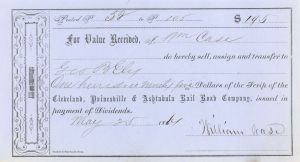 Posted P. 58 to P. 105 $195
For Value Received, I Wm Case
do hereby sell, assign and transfer to
Geo
One hundred Ninety five Dollars of the Scrip of the
Cleveland, Painesville & Ashtabula Rail Road Company, issued in
payment of Dividends.
May 25
William Case